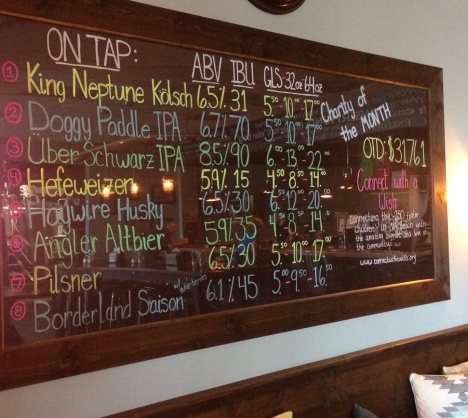 ON TAP: ABV IBU GLS-32oz-64oz
1 King Neptune Kölsch 6.5% 31 5⁵⁰-10⁰⁰-17⁰⁰
2 Doggy Paddle IPA 6.7% 70 5⁵⁰-10⁰⁰-17⁰⁰
3 Über Schwarz IPA 8.5% 90 6⁰⁰-13⁰⁰-22⁰⁰
4 Hefeweizer 5.9% 15 4⁵⁰-8⁰⁰-14⁰⁰
Haywire Husky 6.5% 30 6⁰⁰-12⁰⁰-20⁰⁰
6 Angler Altbier 5.9% 35 4⁵⁰-8⁰⁰-14⁰⁰
7 Pilsner 6.5% 30 5⁵⁰-10⁰⁰-17⁰⁰
8 Borderland Saison 6.1% 45 5⁰⁰-9⁵⁰-16⁵⁰
Charity of
the MONTH
OTD: $31,761
Connect with a
Wish